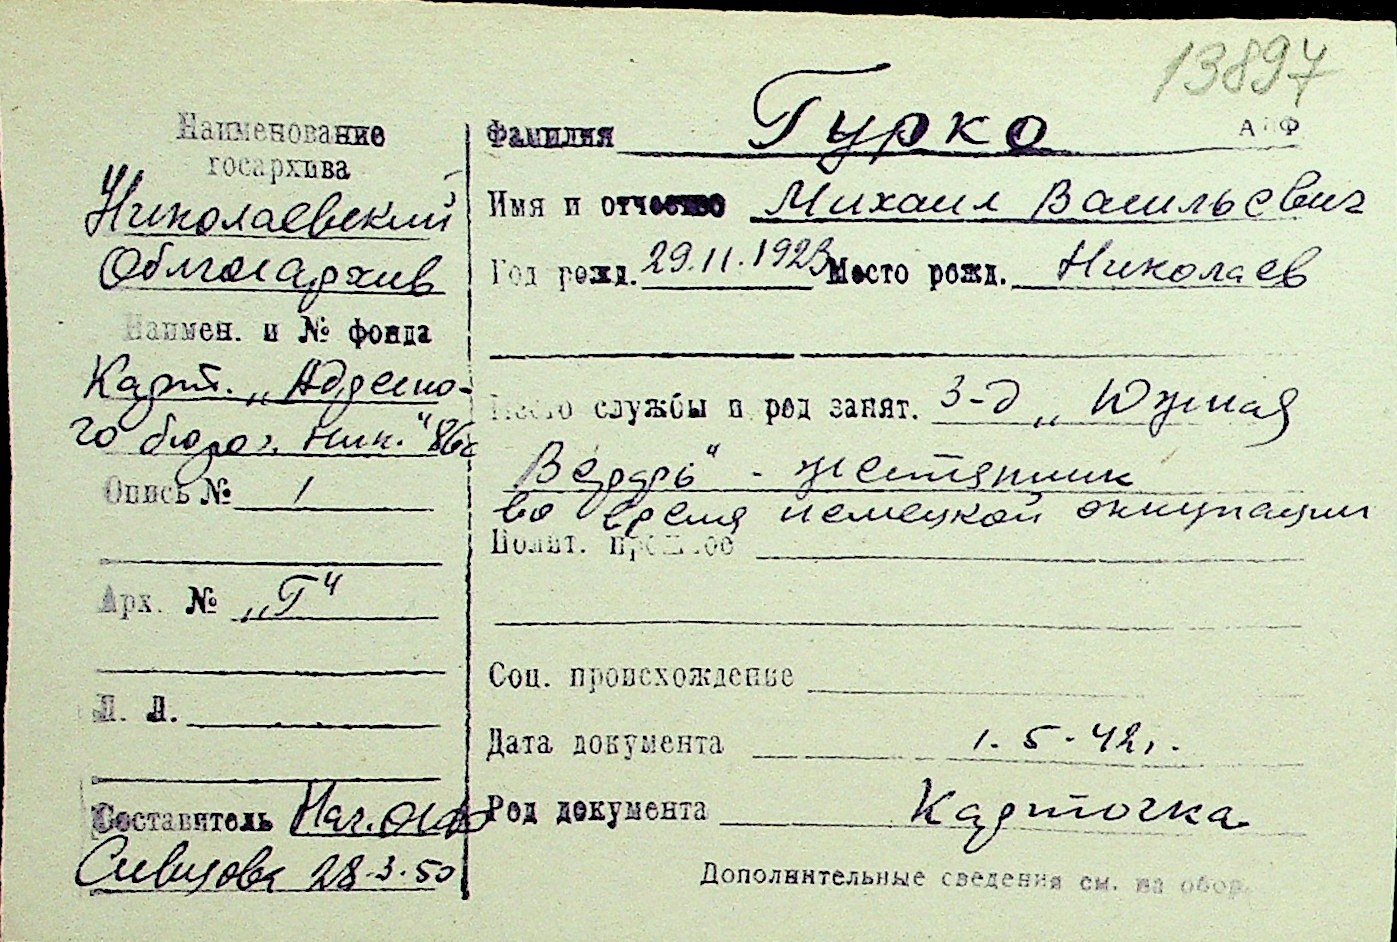 13897
Наименование
госархива
Николаевский
Облгосархив
Наимен. и № фонда
Карт. „Адресно-
го бюро г. Ник."
Опись № 1
Арх. № „Г"
Л. Л.
Составитель Нач.
28.3.50
Фамилия Гурко
А Ф
Имя и отчество Михаил Васильевич
Год рожд. 29.11.1923 Место рожд. Николаев
Место службы и род занят. З-д „Южная
Верфь" - жестянщик
во время немецкой оккупации
Полит. прошлое
Соц. происхождение
Дата документа 1.5-42г.
Род документа Карточка
Дополнительные сведения см. на обор.